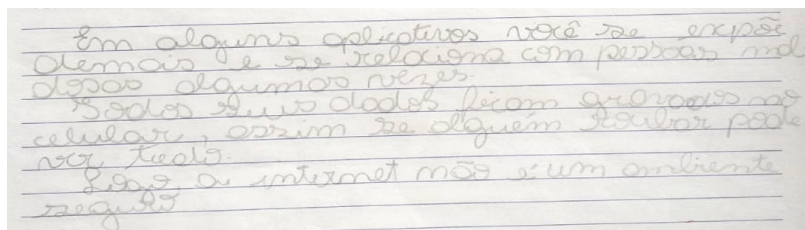 Em alguns aplicativos você se expõe
demais e se relaciona com pessoas mal
dosas algumas vezes.
Todos seus dados ficam gravados no
celular, assim se alguém roubar pode
ver tudo.
Logo, a internet não é um ambiente
seguro